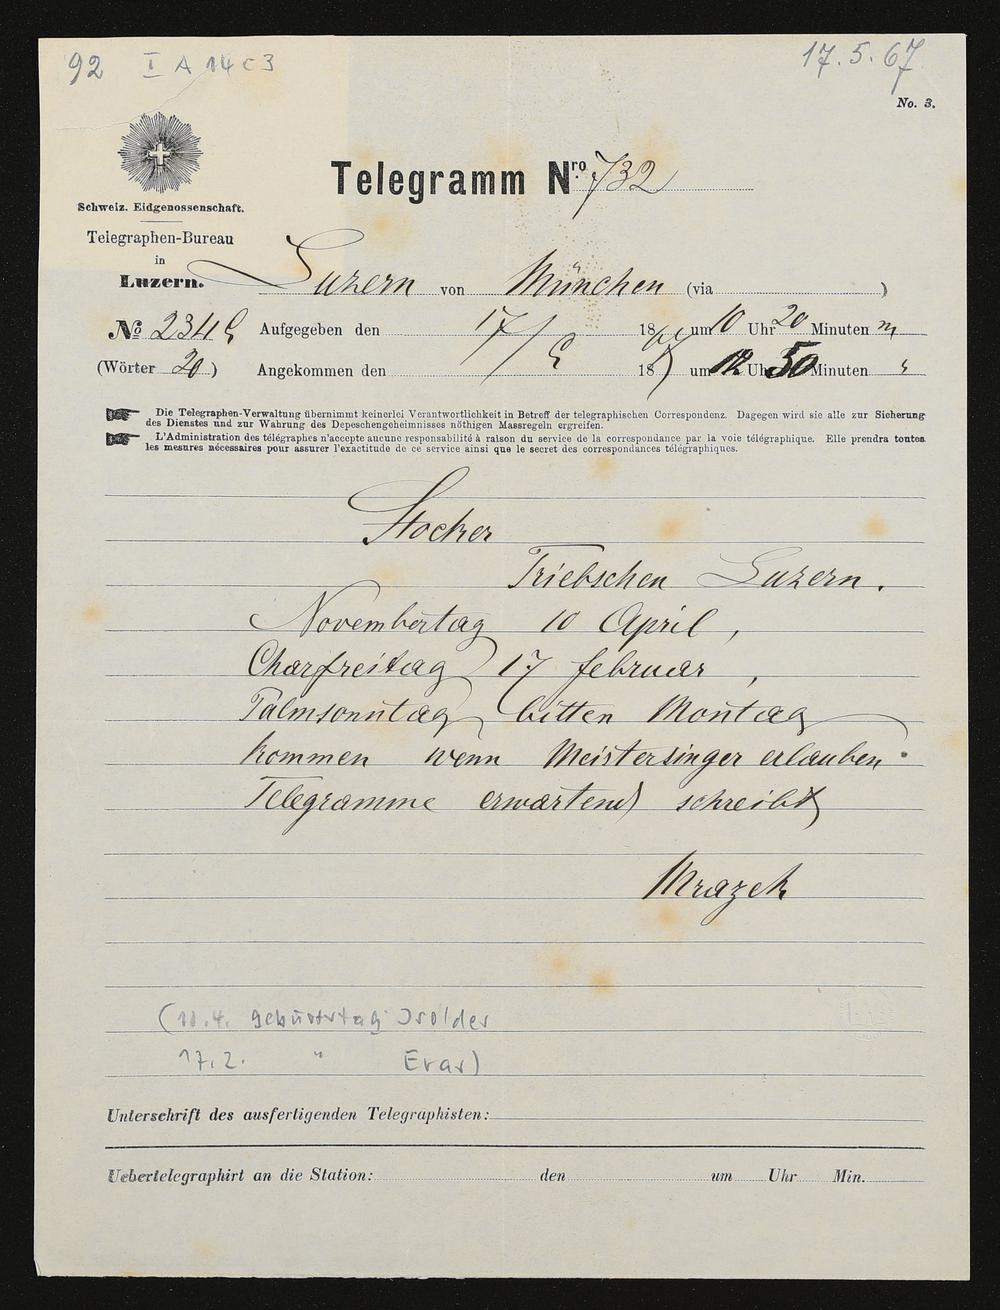 92 I A 14 c 3
17. 5. 67
No. 3.
Telegramm Nro. 732
Schweiz. Eidgenossenschaft.
Telegraphen-Bureau
in
Luzern.
Luzern von München (via )
No 234 Aufgegeben den 17/5 1867 um 10 Uhr 20 Minuten m
(Wörter 20) Angekommen den 1867 um 12 Uhr 50 Minuten "
Die Telegraphen-Verwaltung übernimmt keinerlei Verantwortlichkeit in Betreff der telegraphischen Correspondenz. Dagegen wird sie alle zur Sicherung
des Dienstes und zur Wahrung des Depeschengeheimnisses nöthigen Massregeln ergreifen.
L'Administration des télégraphes n'accepte aucune responsabilité à raison du service de la correspondance par la voie télégraphique. Elle prendra toutes
les mesures nécessaires pour assurer l'exactitude de ce service ainsi que le secret des correspondances télégraphiques.
Stocker
Triebschen Luzern.
Novembertag 10 April,
Charfreitag 17 februar,
Palmsonntag bitten Montag
kommen wenn Meistersinger erlauben.
Telegramme erwartend schreibt
Mrazek
(10.4. Geburtstag Isoldes
17.2. " Evas)
Unterschrift des ausfertigenden Telegraphisten:
Uebertelegraphirt an die Station: den um Uhr Min.